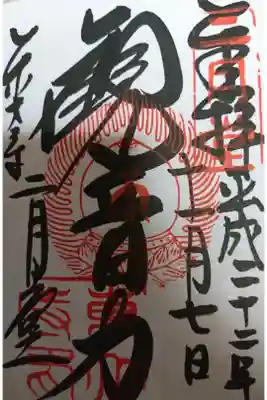 奉拝 平成二十二年
十一月七日
観音力
東大寺 二月堂